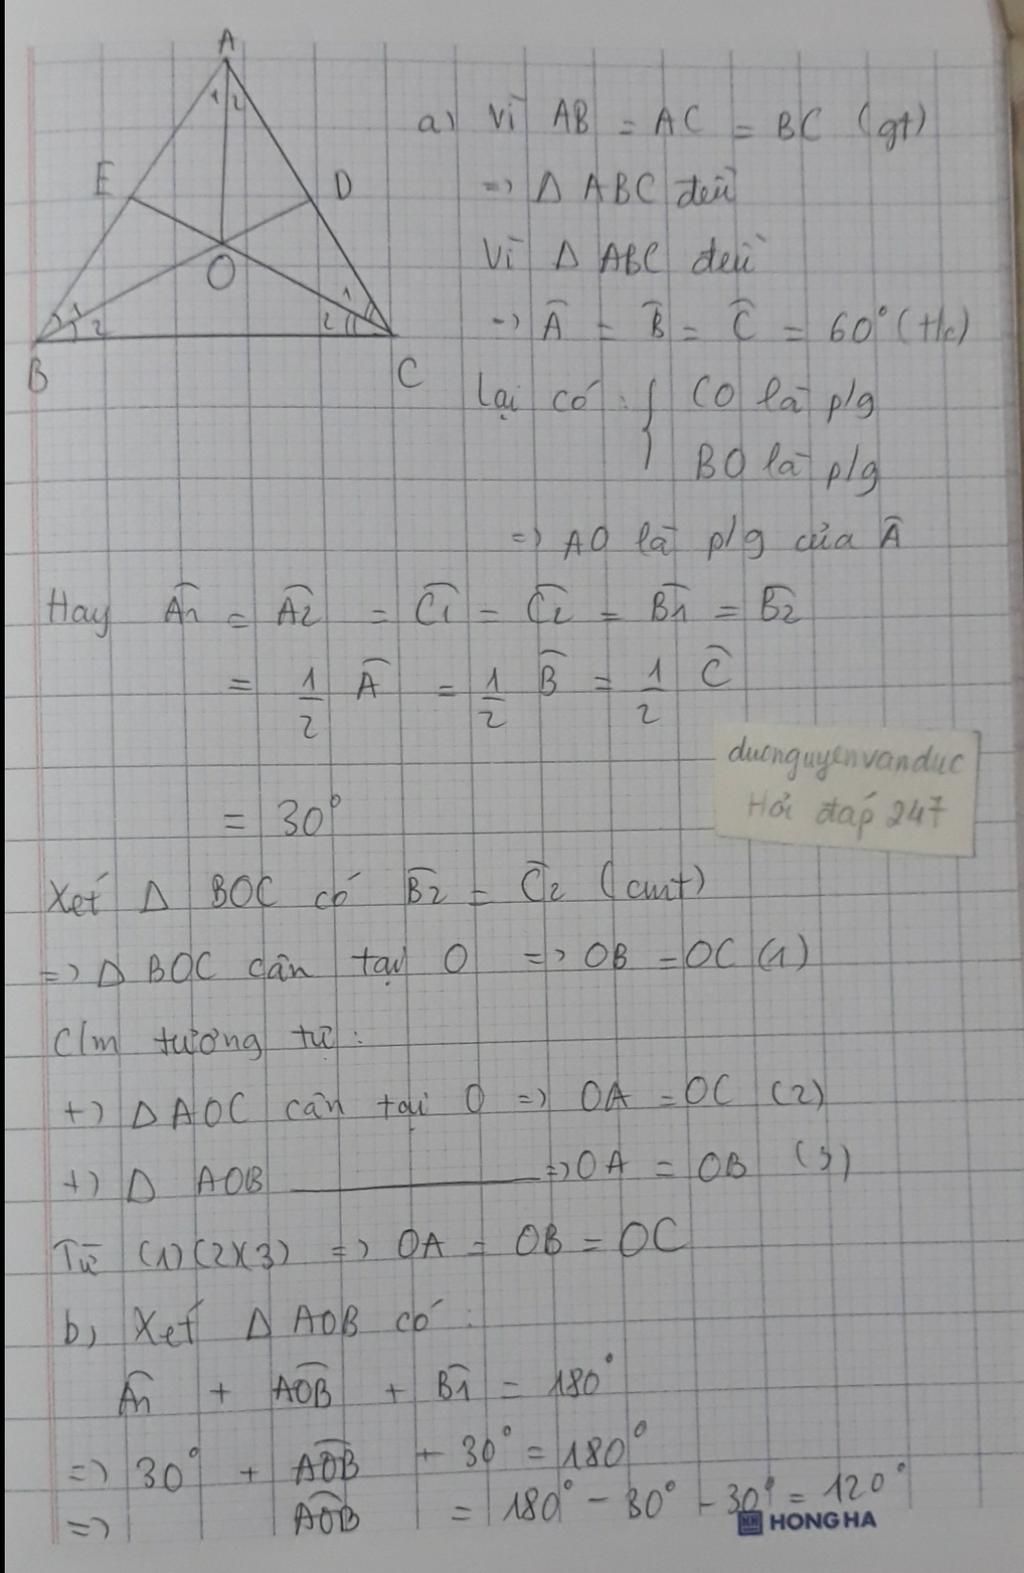 A
1 2
E
D
O
1
2
1
2
B
C
a) Vì AB = AC = BC (gt)
=> Δ ABC đều
Vì Δ ABC đều
=> Â = B̂ = Ĉ = 60° (t/c)
Lại có: { CO là p/g
BO là p/g
=> AO là p/g của Â
Hay Â1 = Â2 = Ĉ1 = Ĉ2 = B̂1 = B̂2
= 1/2 Â = 1/2 B̂ = 1/2 Ĉ
= 30°
ducnguyenvanduc
Hỏi đáp 247
Xét Δ BOC có B̂2 = Ĉ2 (cmt)
=> Δ BOC cân tại O => OB = OC (1)
C/m tương tự:
+) Δ AOC cân tại O => OA = OC (2)
+) Δ AOB ——— => OA = OB (3)
Từ (1)(2)(3) => OA = OB = OC
b, Xét Δ AOB có:
Â1 + AÔB + B̂1 = 180°
=> 30° + AÔB + 30° = 180°
=> AÔB = 180° - 30° - 30° = 120°
HH HONG HA